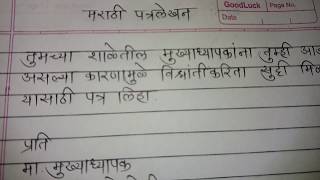 मराठी पत्रलेखन
GoodLuck
Page No.
Date
तुमच्या शाळेतील मुख्याध्यापकांना तुम्ही
असल्या कारणामुळे विश्रांतीकरिता सुट्टी
यासाठी पत्र लिहा.
प्रति
मा. मुख्याध्यापक